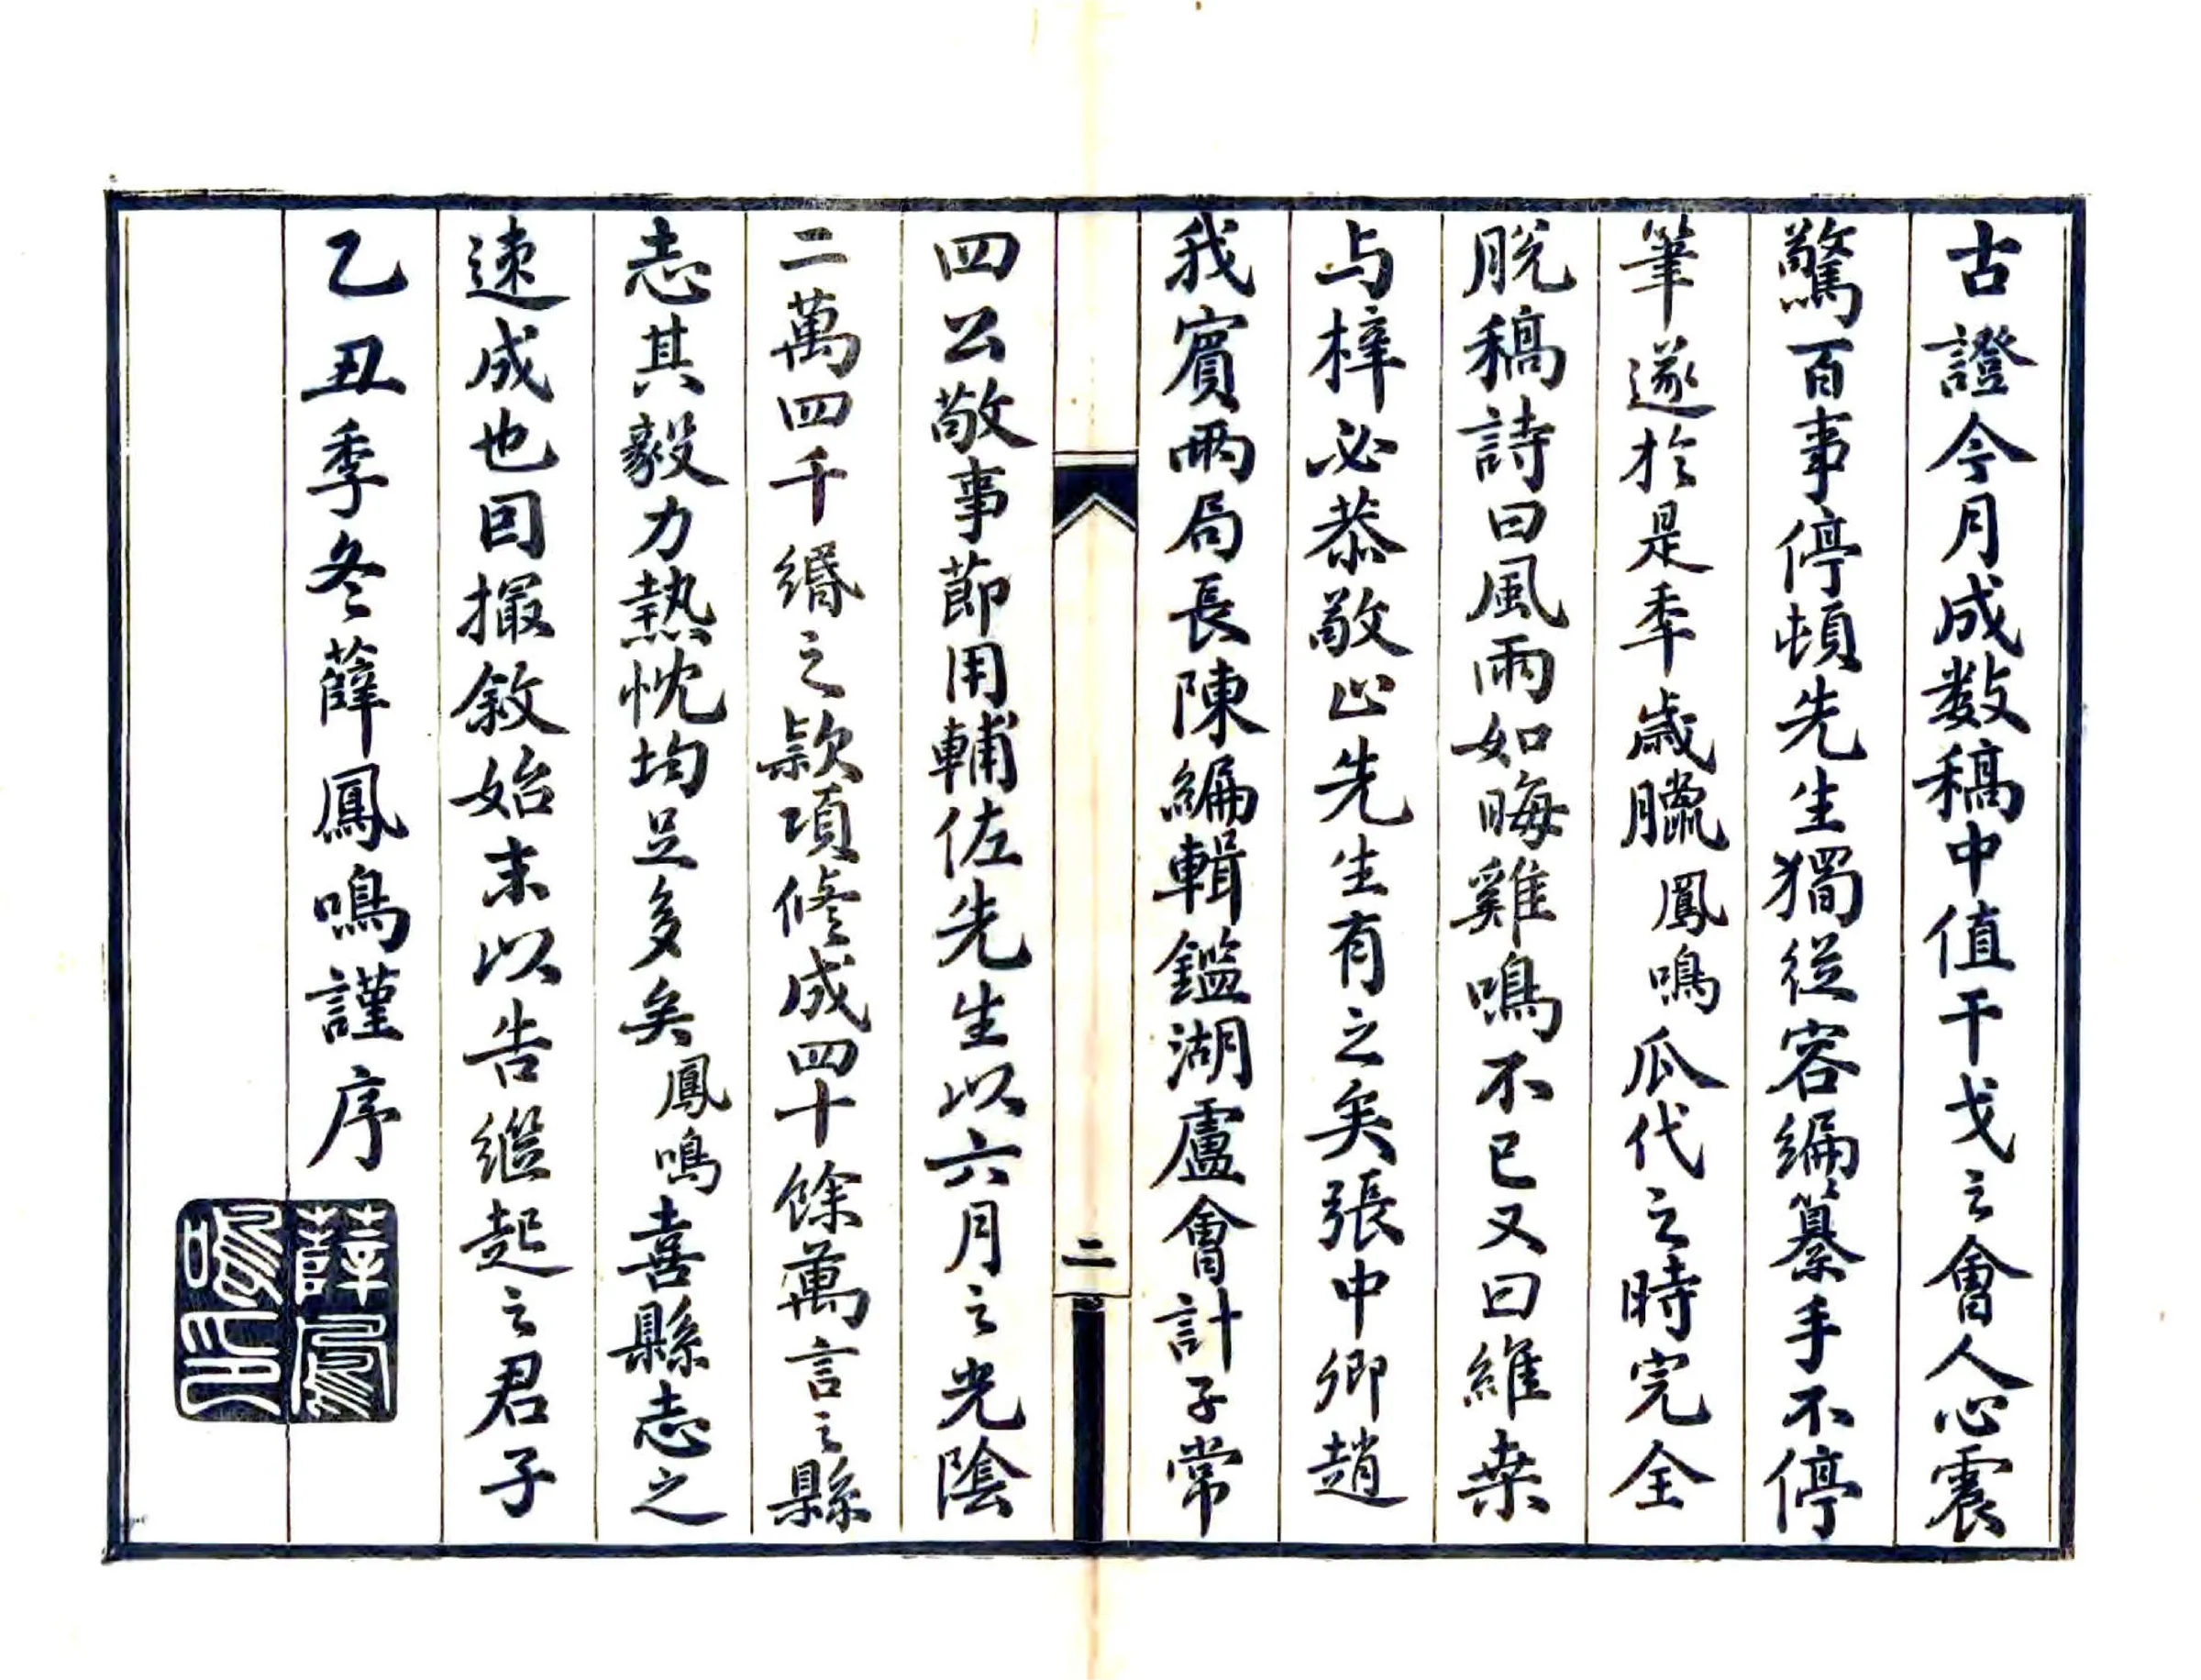 古證今月成数稿中值干戈之會人心震
驚百事停頓先生獨從容編纂手不停
筆遂於是季歲臘鳳鳴瓜代之時完全
脫稿詩曰風雨如晦雞鳴不已又曰維桒
与梓必恭敬止先生有之矣張中卿趙
我賓兩局長陳編輯鑑湖盧會計子常
二
四公敬事節用輔佐先生以六月之光陰
二萬四千緡之款項修成四十餘萬言之縣
志其毅力熱忱均足多矣鳳鳴喜縣志之
速成也回撮敘始末以告繼起之君子
乙丑季冬薛鳳鳴謹序
薛鳳
鳴印